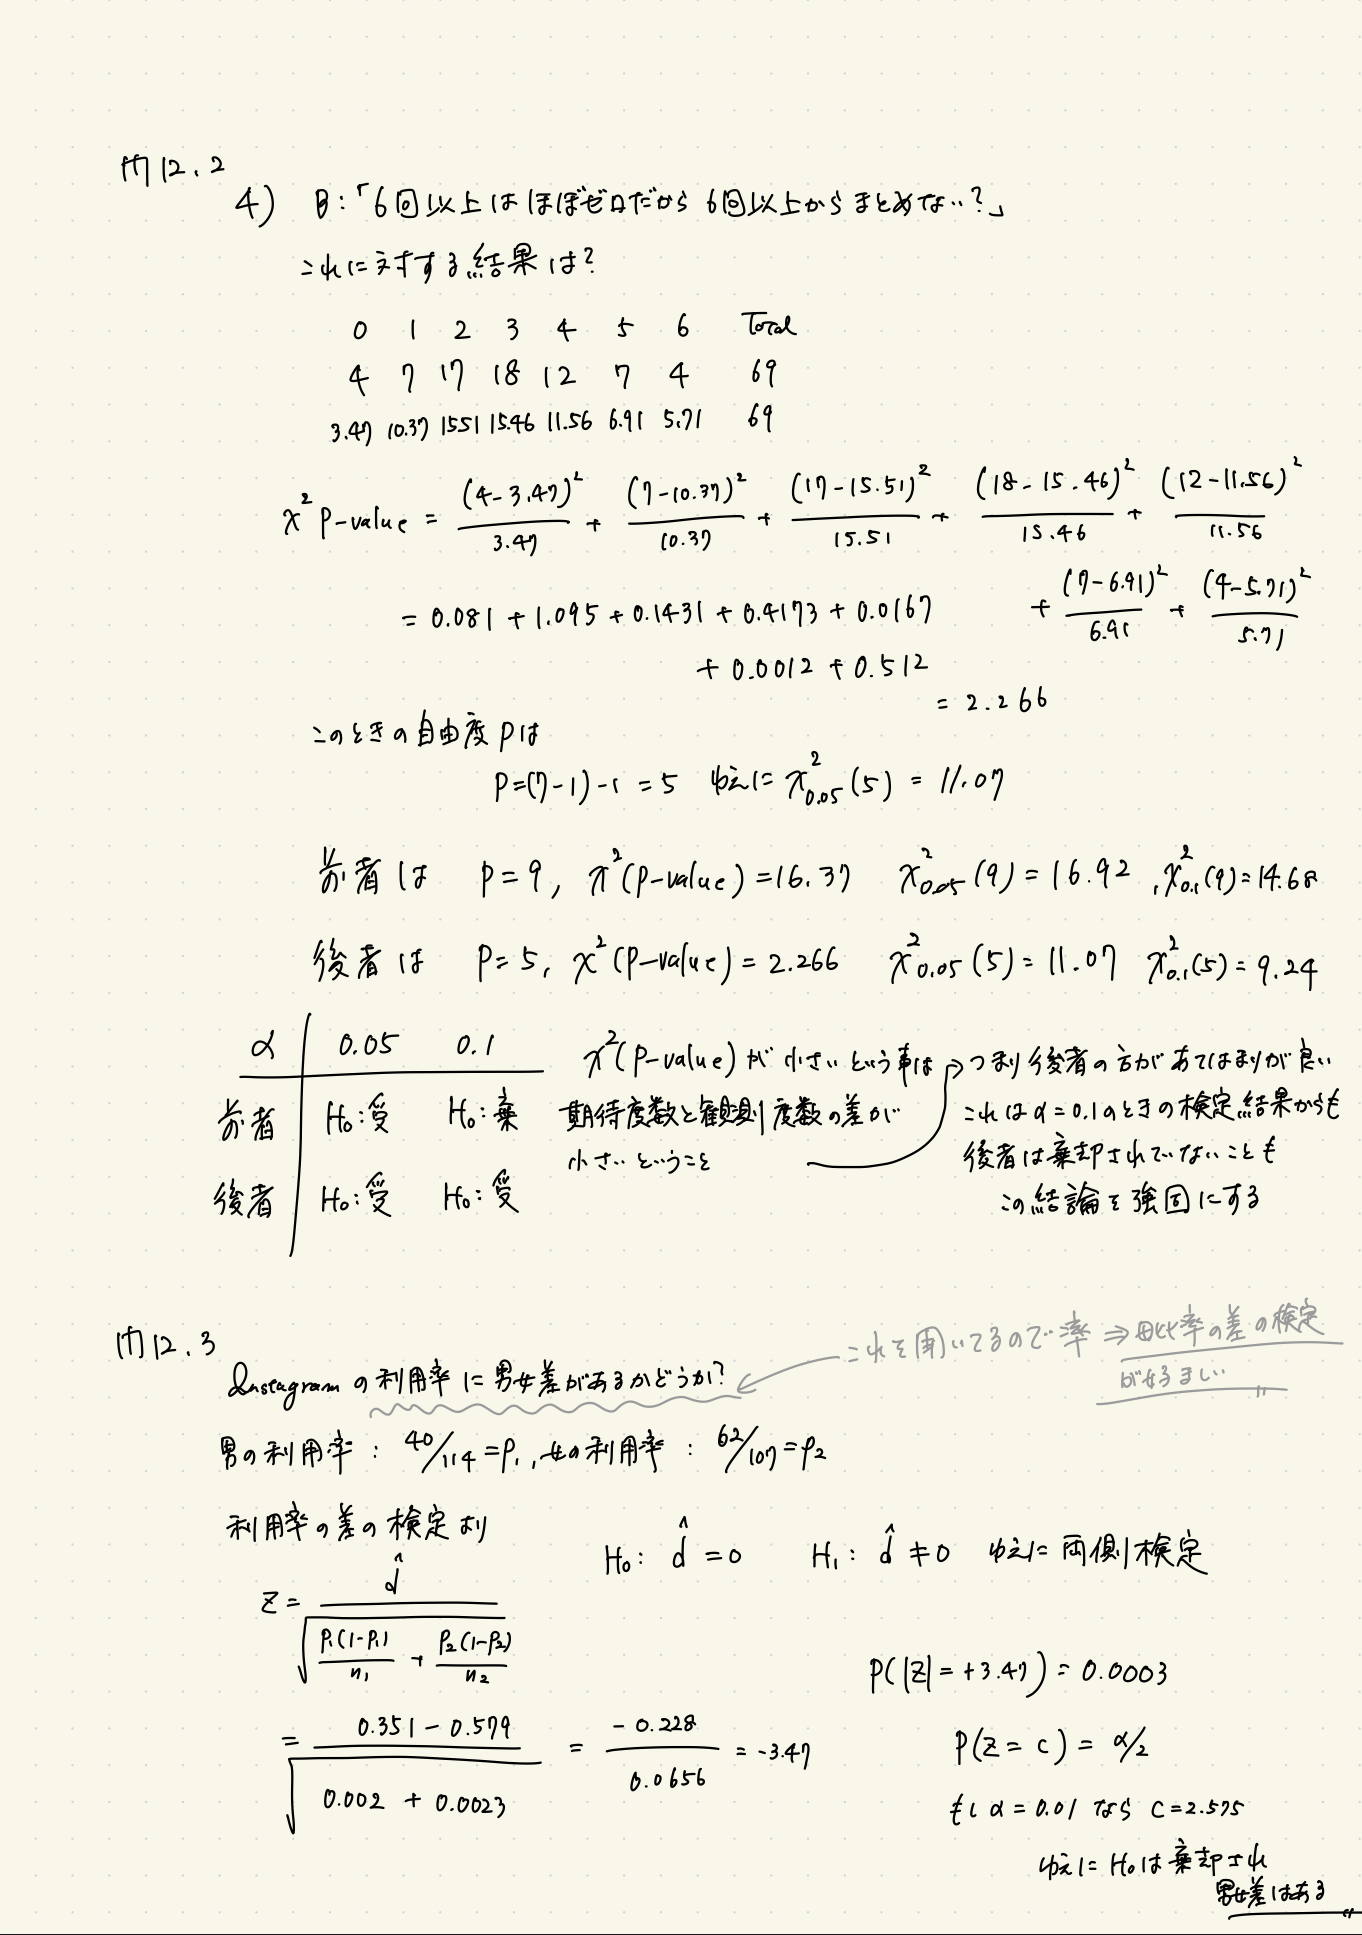 問12.2
4) B:「6回以上はほぼゼロだから6回以上からまとめない?」
これに対する結果は?
0 1 2 3 4 5 6 Total
4 7 17 18 12 7 4 69
3.47 10.37 15.51 15.46 11.56 6.91 5.71 69
χ² P-value = (4-3.47)²/3.47 + (7-10.37)²/10.37 + (17-15.51)²/15.51 + (18-15.46)²/15.46 + (12-11.56)²/11.56
+ (7-6.91)²/6.91 + (4-5.71)²/5.71
= 0.081 + 1.095 + 0.1431 + 0.4173 + 0.0167
+ 0.0012 + 0.512
= 2.266
このときの自由度Pは
P=(7-1)-1 = 5 ゆえに χ²0.05(5) = 11.07
前者は P=9, χ²(P-value)=16.37 χ²0.05(9)=16.92, χ²0.1(9)=14.68
後者は P=5, χ²(P-value)=2.266 χ²0.05(5)=11.07 χ²0.1(5)=9.24
α 0.05 0.1
前者 H₀:受 H₀:棄
後者 H₀:受 H₀:受
χ²(P-value)が小さいという事は
期待度数と観測度数の差が
小さいということ
→つまり後者の方があてはまりが良い
これはα=0.1のときの検定結果からも
後者は棄却されていないことも
この結論を強固にする
問12.3
これを聞いてるので率 ⇒ 母比率の差の検定
が好ましい
Instagramの利用率に男女差があるかどうか?
男の利用率: 40/114=P₁, 女の利用率: 62/107=P₂
利用率の差の検定より
H₀: d̂ = 0 H₁: d̂ ≠ 0 ゆえに両側検定
Z = d̂/√(P₁(1-P₁)/n₁ + P₂(1-P₂)/n₂)
= (0.351 - 0.579)/√(0.002 + 0.0023) = -0.228/0.0656 = -3.47
P(|Z|=+3.47) = 0.0003
P(Z=c) = α/2
もしα=0.01なら c=2.575
ゆえにH₀は棄却され
男女差はある